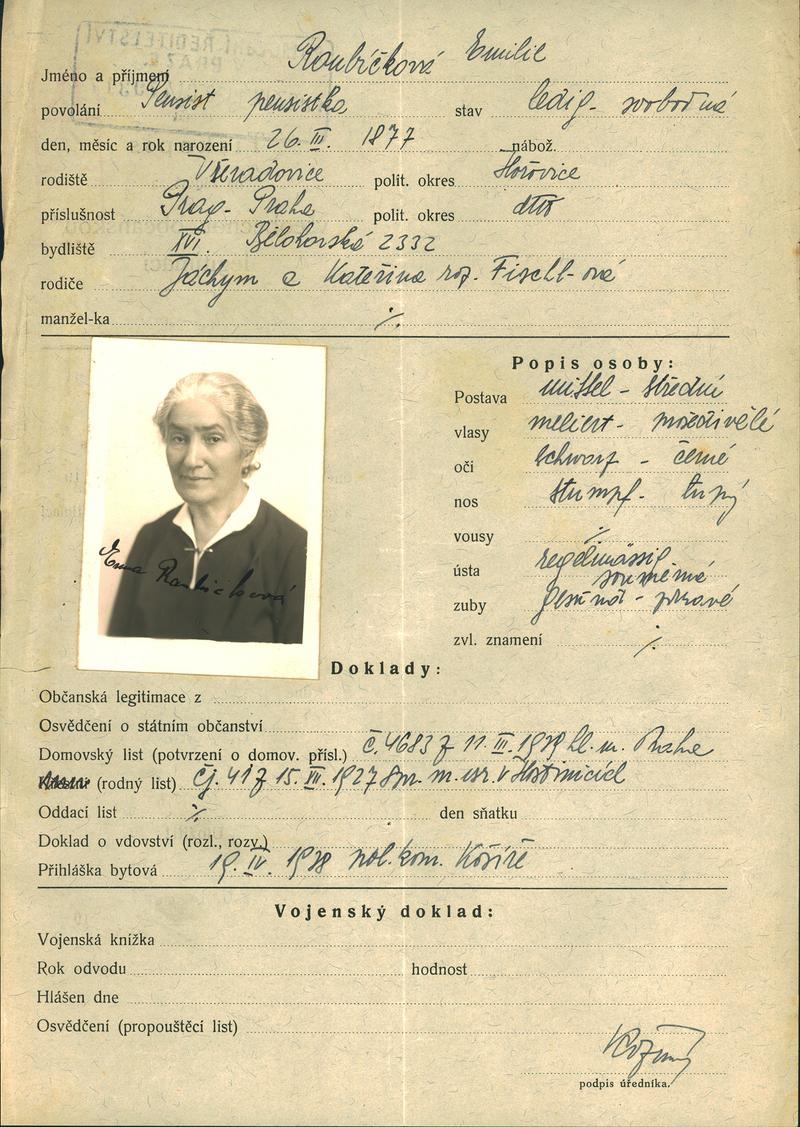 Jméno a příjmení Roubíčková Emilie
povolání Pensist pensistka stav ledig - svobodná
den, měsíc a rok narození 26. III. 1877 nábož.
rodiště Všeradovice polit. okres Hořovice
příslušnost Prag - Praha polit. okres dtto
bydliště XVI. Bělohorská 2332
rodiče Jáchym a Kateřina roz. Fischl-ová
manžel-ka ·/.
Popis osoby:
Postava mittel - střední
vlasy meliert - prošedivělé
oči schwarz - černé
nos stumpf - tupý
vousy ·/.
ústa regelmässig souměrná
zuby gesund - zdravé
zvl. znamení ·/.
Emma Roubíčková
Doklady:
Občanská legitimace z
Osvědčení o státním občanství
Domovský list (potvrzení o domov. přísl.) č. 4683 z 11. III. 1939 hl. m. Praha
(rodný list) čj. 41 z 15. VII. 1927 v Hostomicích
Oddací list ·/. den sňatku
Doklad o vdovství (rozl., rozv.)
Přihláška bytová 19. IV. 1938 pol. kom. Košíře
Vojenský doklad:
Vojenská knížka
Rok odvodu hodnost
Hlášen dne
Osvědčení (propouštěcí list)
podpis úředníka.